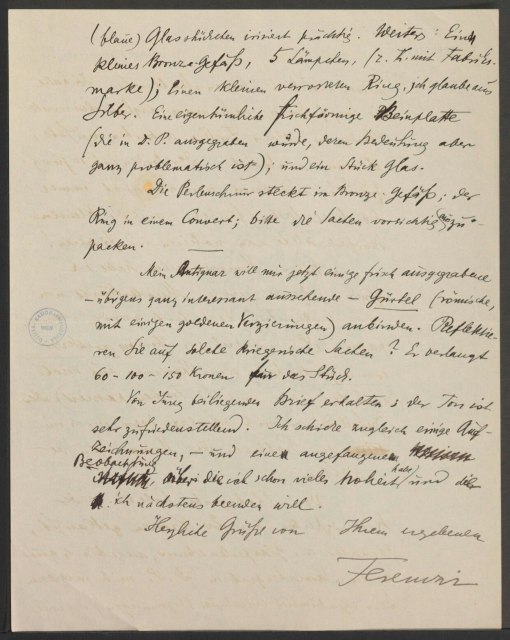 (blaue) Glasstückchen irisiert prächtig. Weiters: Ein
kleines Bronze-Gefäß, 5 Lämpchen, (z. T. mit Fabriks-
marke); Einen kleinen verrosteten Ring, ich glaube aus
Silber. Eine eigentümliche fischförmige Beinplatte
(die in D. P. ausgegraben wurde, deren Bedeutung aber
ganz problematisch ist); und ein Stück Glas.
Die Perlenschnur steckt im Bronze-Gefäß; der
Ring in einem Couvert; bitte die Sachen vorsichtig auszu-
packen.
Mein Antiquar will mir jetzt einige frisch ausgegrabene
– übrigens ganz interessant aussehende – Gürtel (römische,
mit einigen goldenen Verzierungen) anbinden. Reflektie-
ren Sie auf solche kriegerische Sachen? Er verlangt
60–100–150 Kronen für das Stück.
Von Jung beiliegenden Brief erhalten; der Ton ist
sehr zufriedenstellend. Ich schicke zugleich einige Auf-
zeichnungen, – und eine angefangene
Beobachtung, über die ich schon vieles notiert habe und die
ich nächstens beenden will.
Herzliche Grüße von Ihrem ergebenen
Ferenczi